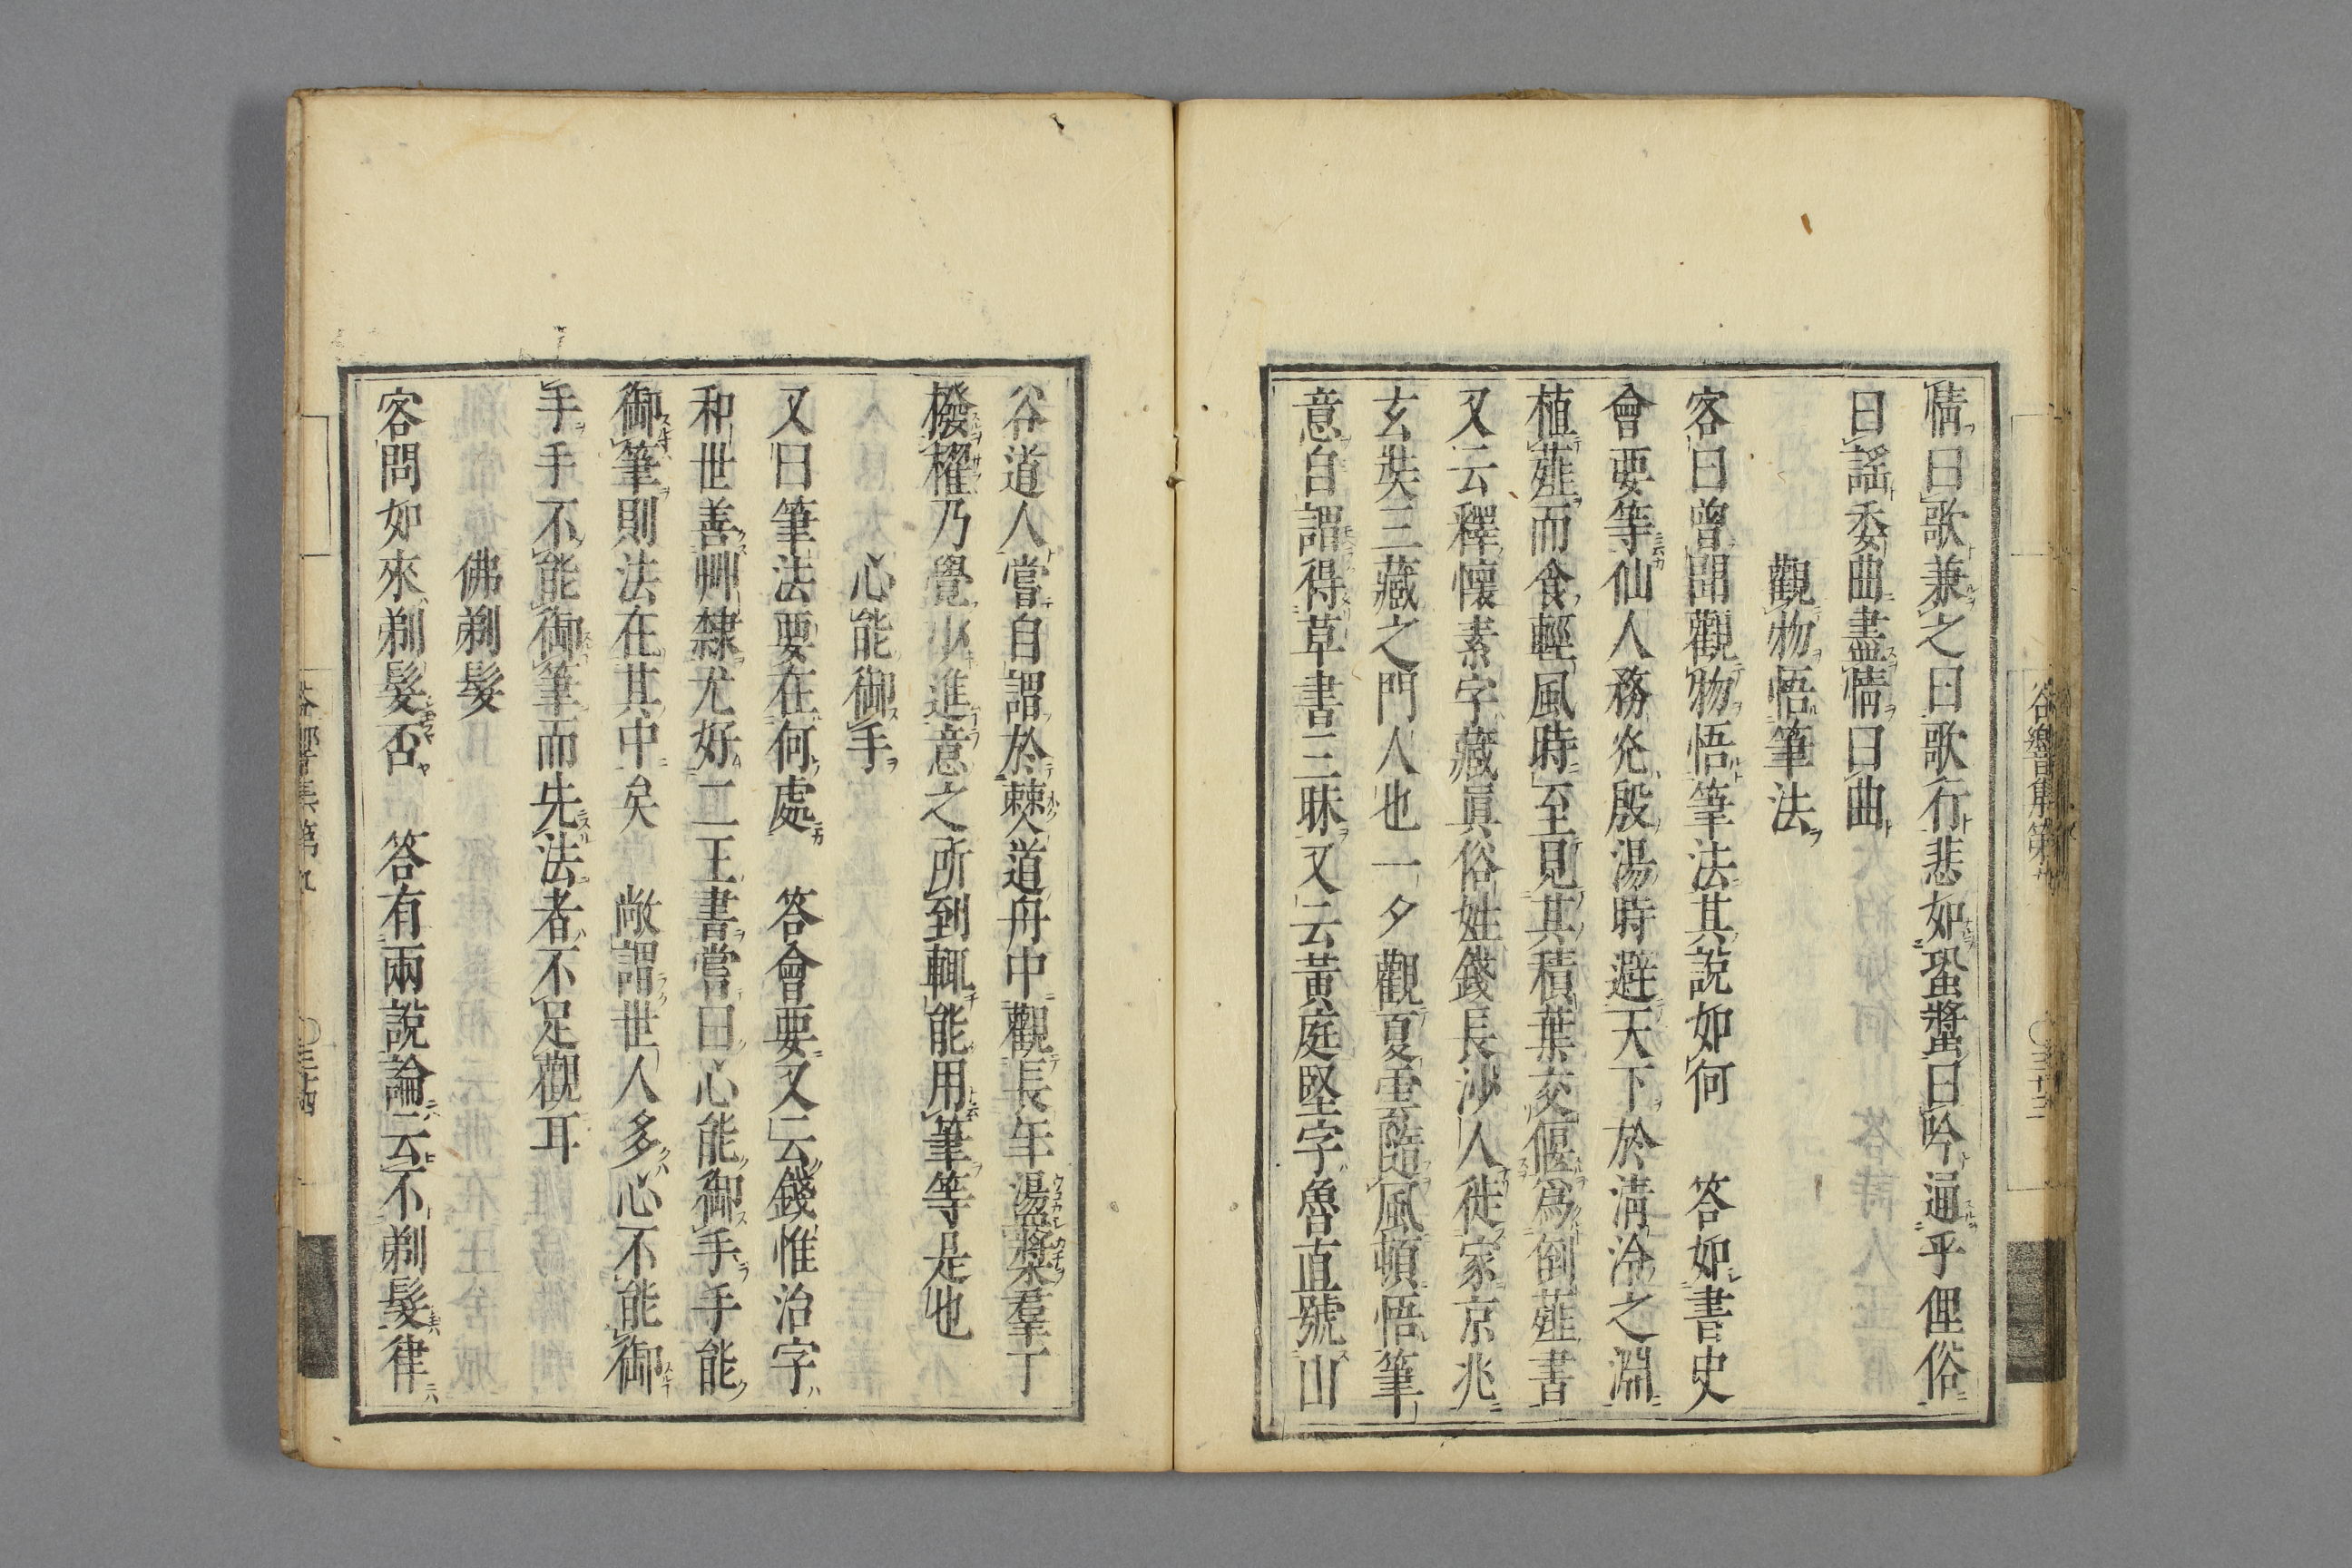 情曰歌兼之曰歌行悲如蛩螿曰吟通乎俚俗
曰謠委曲盡情曰曲
觀物悟筆法
客曰曾聞觀物悟筆法其說如何　答如書史
會要等仙人務光殷湯時避天下於淸泠之淵
植薤而食輕風時至見其積葉交偃爲倒薤書
又云釋懷素字藏眞俗姓錢長沙人徙家京兆
玄奘三藏之門人也一夕觀夏雲隨風頓悟筆
意自謂得草書三昧又云黃庭堅字魯直號山
谷道人嘗自謂於棘人道舟中觀長年盪槳羣丁
撥櫂乃覺少進意之所到輒能用筆等是也
心能御手
又曰筆法要在何處　答會要又云錢惟治字
和世善艸隸尤好二王書嘗曰心能御手手能
御筆則法在其中矣　敞謂世人多心不能御
手手不能御筆而先法者不足觀耳
佛剃髮
客問如來剃髮否　答有兩說論云不剃髮律
谷響集第九
〇三十三
谷響集第九
〇三十四